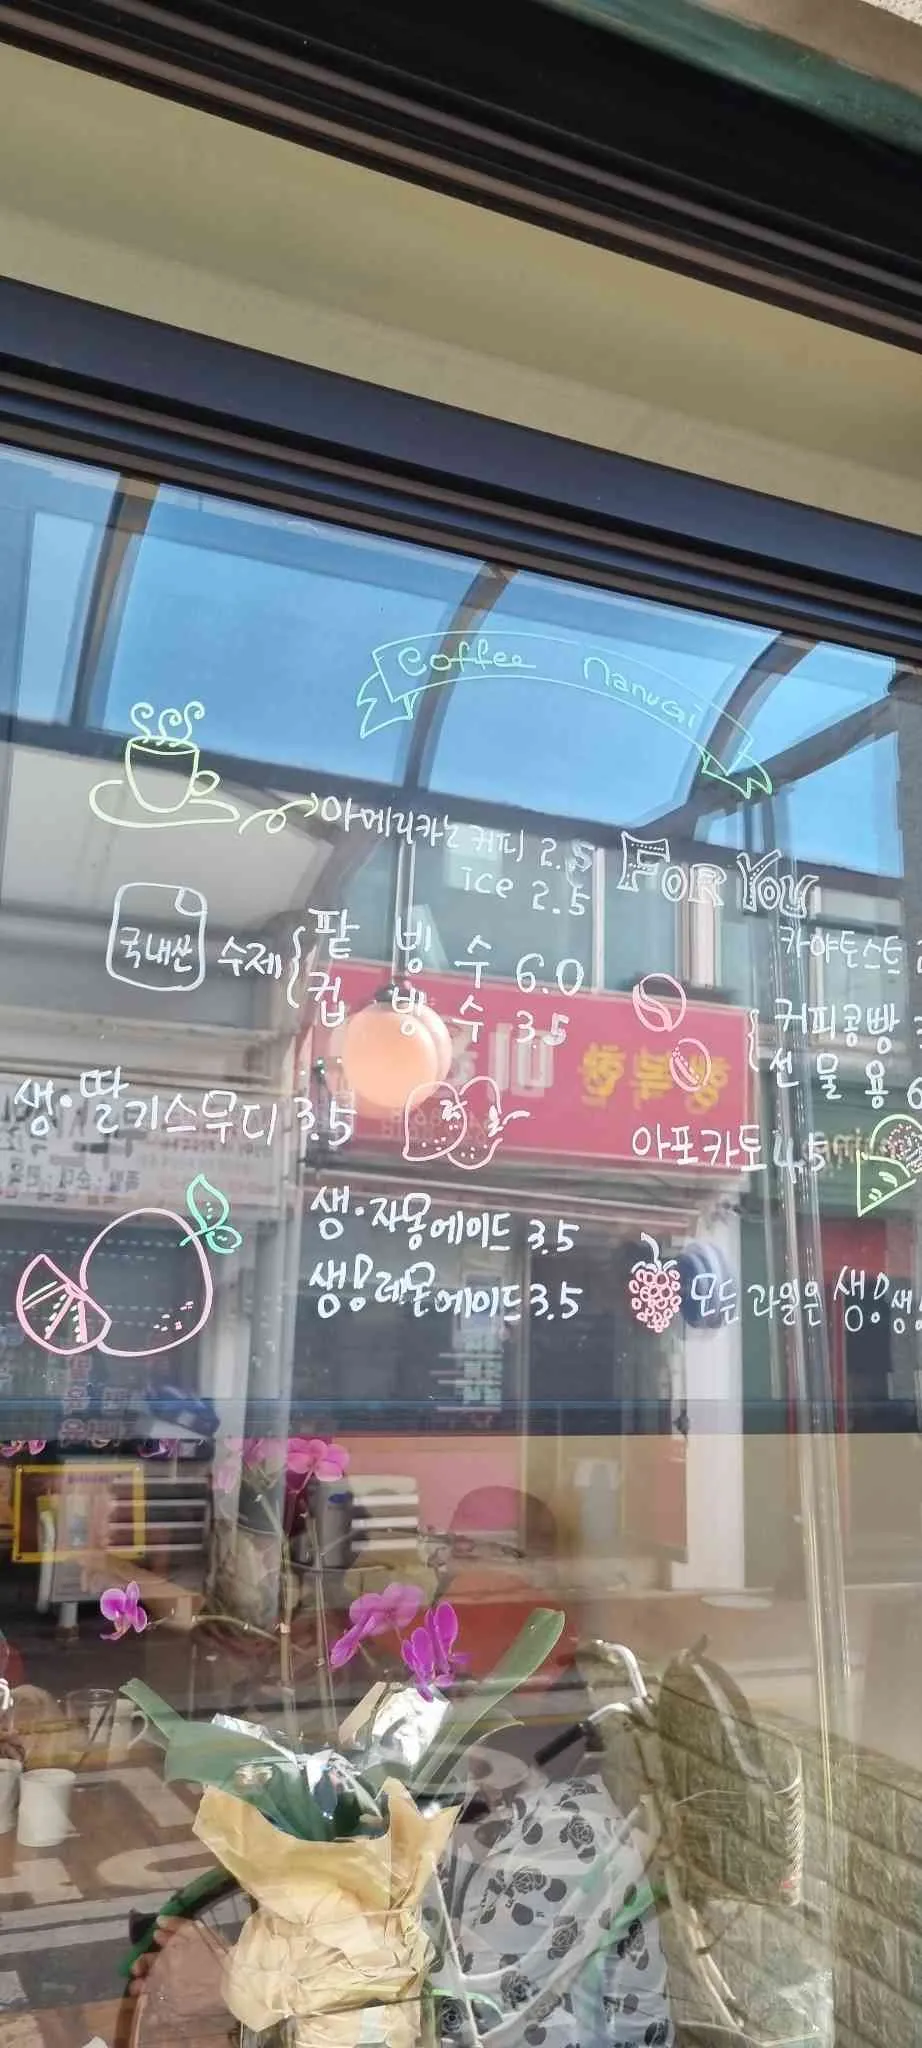 Coffee nanuGi
아메리카노 커피 2.5
ice 2.5
FOR YOU
국내산 수제 팥빙수 6.0
컵빙수 3.5
카야토스트
커피콩빵
선물용
생·딸기스무디 3.5
아포카토 4.5
생·자몽에이드 3.5
생!레몬에이드 3.5
모든 과일은 생!생
행복한